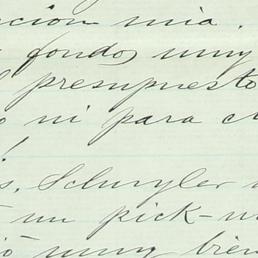 cion mia.
fondos muy
presupuesto
o ni para c
!
s. Schuyler
un pick-u
ó muy bien